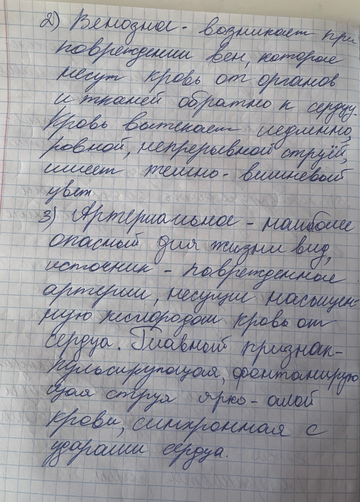 2) Венозное - возникает при
повреждении вен, которые
несут кровь от органов
и тканей обратно к сердцу.
Кровь вытекает медленно,
ровной, непрерывной струёй,
имеет темно-вишневый
цвет.
3) Артериальное - наиболее
опасный для жизни вид,
источник - поврежденные
артерии, несущие насыщен-
ную кислородом кровь от
сердца. Главный признак -
пульсирующая, фонтанирую
щая струя ярко-алой
крови, синхронная с
ударами сердца.